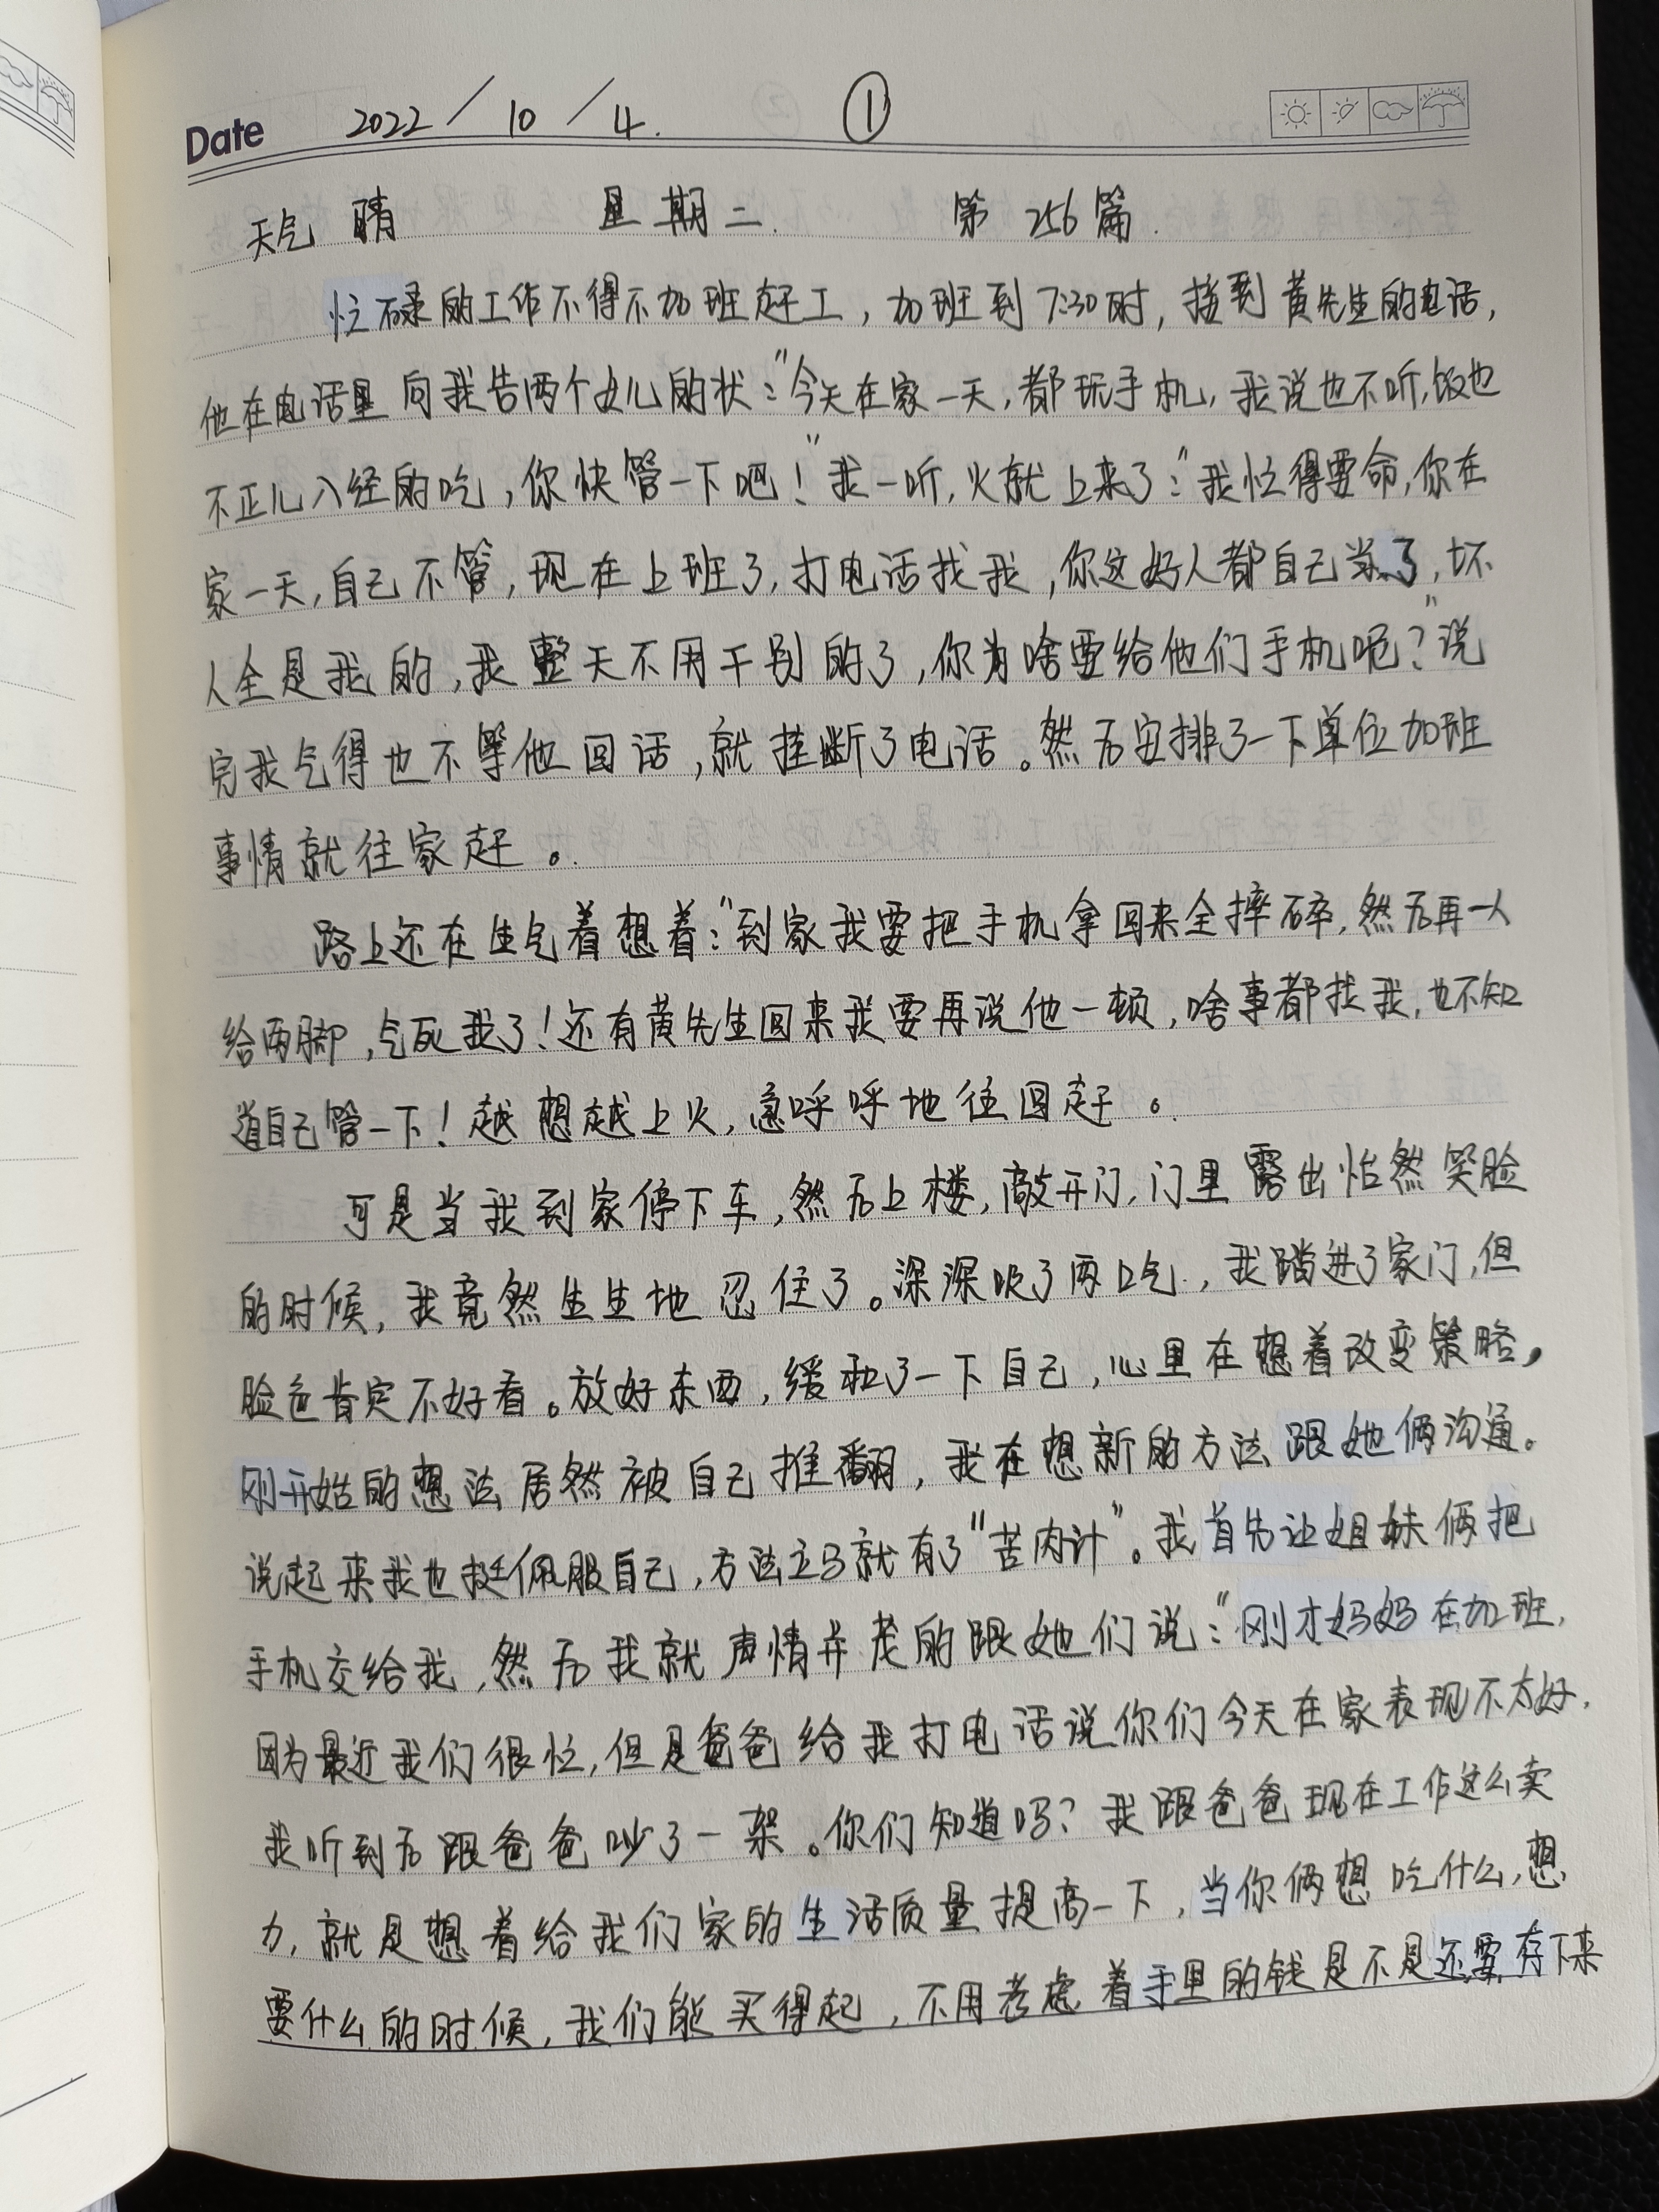 Date 2022/10/4. ①
天气 晴 星期二. 第 256 篇.
忙碌的工作不得不加班赶工，加班到7:30时，接到黄先生的电话，
他在电话里向我告两个女儿的状："今天在家一天，都玩手机，我说也不听，饭也
不正儿八经的吃，你快管一下吧！"我一听，火就上来了："我忙得要命，你在
家一天，自己不管，现在上班了，打电话找我，你这好人都自己当了，坏
人全是我的，我整天不用干别的了，你为啥要给他们手机呢？"说
完我气得也不等他回话，就挂断了电话。然后安排了一下单位加班
事情就往家赶。
路上还在生气着想着："到家我要把手机拿回来全摔碎，然后再一人
给两脚，气死我了！还有黄先生回来我要再说他一顿，啥事都找我，也不知
道自己管一下！越想越上火，急呼呼地往回赶。
可是当我到家停下车，然后上楼，敲开门，门里露出怡然笑脸
的时候，我竟然生生地忍住了。深深吸了两口气，我踏进了家门，但
脸色肯定不好看。放好东西，缓和了一下自己，心里在想着改变策略，
刚开始的想法居然被自己推翻，我在想新的方法跟她俩沟通。
说起来我也挺佩服自己，方法立马就有了"苦肉计"。我首先让姐妹俩把
手机交给我，然后我就声情并茂的跟她们说："刚才妈妈在加班，
因为最近我们很忙，但是爸爸给我打电话说你们今天在家表现不太好，
我听到后跟爸爸吵了一架。你们知道吗？我跟爸爸现在工作这么卖
力，就是想着给我们家的生活质量提高一下，当你俩想吃什么，想
要什么的时候，我们能买得起，不用考虑着手里的钱是不是还要存下来